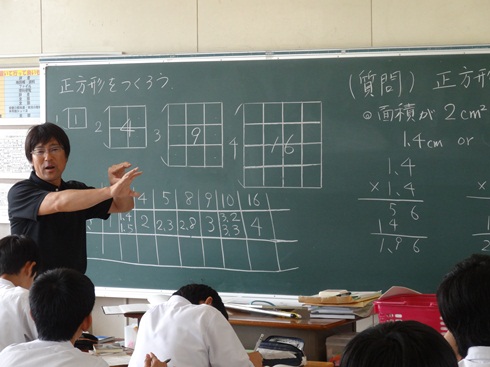 正方形をつくろう.
1 1
2 4
3 9
4 16
4 5 8 9 10 16
1 1.4 1.5 2 2.3 2.8 3 3.2 3.3 4
(質問) 正方形
◎面積が 2cm²
1.4cm or
1.4
× 1.4
5 6
1 4
1.9 6